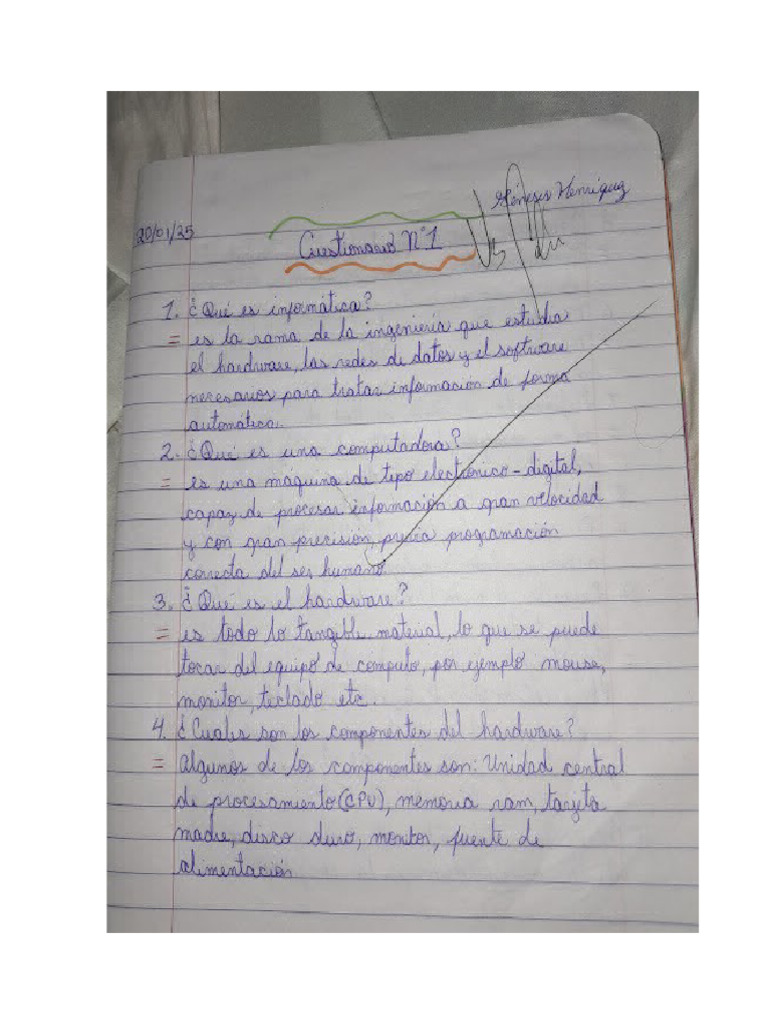 Génesis Henriquez
20/01/25
Cuestionario N°1
1. ¿Qué es informática?
= es la rama de la ingeniería que estudia
el hardware, las redes de datos y el software
necesarios para tratar información de forma
automática.
2. ¿Qué es una computadora?
= es una máquina de tipo electrónico-digital,
capaz de procesar información a gran velocidad
y con gran precisión, previa programación
correcta del ser humano.
3. ¿Qué es el hardware?
= es todo lo tangible, material, lo que se puede
tocar del equipo de computo, por ejemplo mouse,
monitor, teclado etc.
4. ¿Cuales son los componentes del hardware?
= Algunos de los componentes son: Unidad central
de procesamiento(CPU), memoria ram, tarjeta
madre, disco duro, monitor, fuente de
alimentación